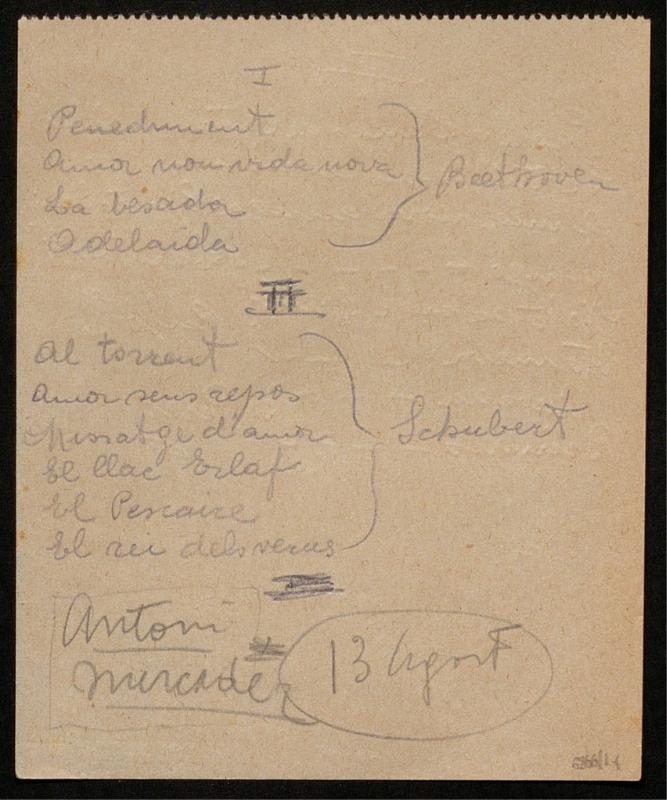 I
Penediment
Amor nou vida nova
La besada
Adelaida
Beethoven
II
Al torrent
Amor sens repos
Missatge d'amor
El llac Erlaf
El Pescaire
El rei dels verns
Schubert
Antoni
Mercader
13 Agost